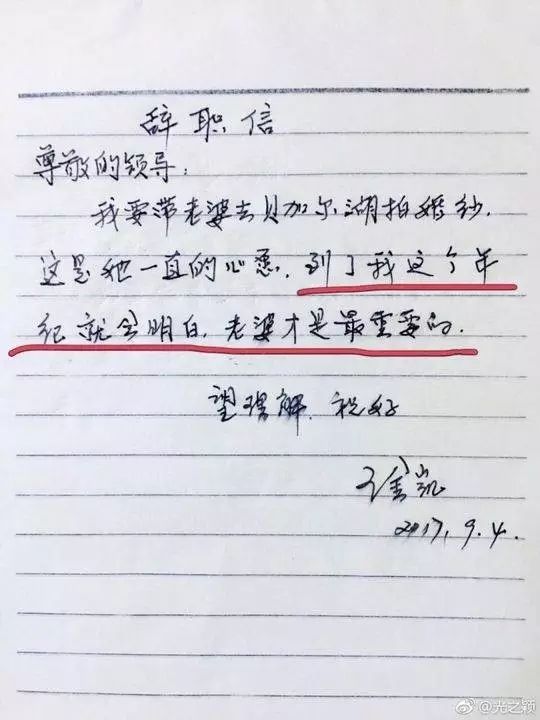 辞职信
尊敬的领导：
我要带老婆去贝加尔湖拍婚纱.
这是她一直的心愿.到了我这个年
纪就会明白.老婆才是最重要的.
望理解.祝好
徐凯
2017.9.4.
@光之颖